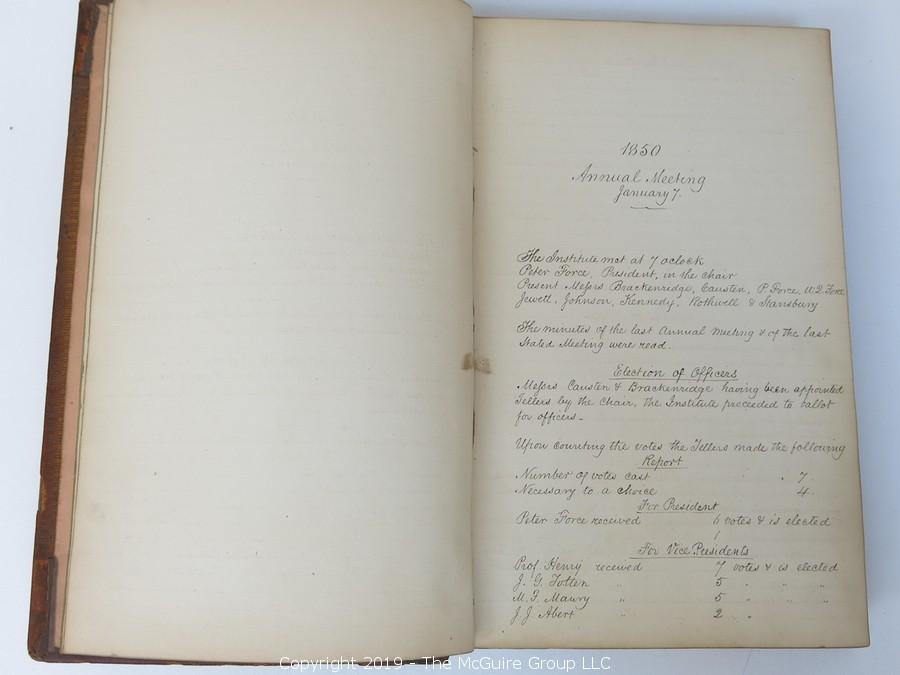 1850
Annual Meeting
January 7.
The Institute met at 7 oclock
Peter Force, President, in the chair
Present Messrs Brackenridge, Causten, P. Force, W. Q. Force
Jewell, Johnson, Kennedy, Rothwell & Stansbury
The minutes of the last Annual Meeting & of the last
Stated Meeting were read.
Election of Officers
Messrs Causten & Brackenridge having been appointed
Tellers by the Chair, the Institute proceeded to ballot
for officers -
Upon counting the votes the Tellers made the following
Report
Number of votes cast " . 7.
Necessary to a choice " 4.
For President
Peter Force received 6 votes & is elected
1
For Vice Presidents
Prof. Henry received 7 votes & is elected
J. G. Totten " 5 " " "
M. F. Maury " 5 " " "
J. J. Abert " 2 "
Copyright 2019 - The McGuire Group LLC